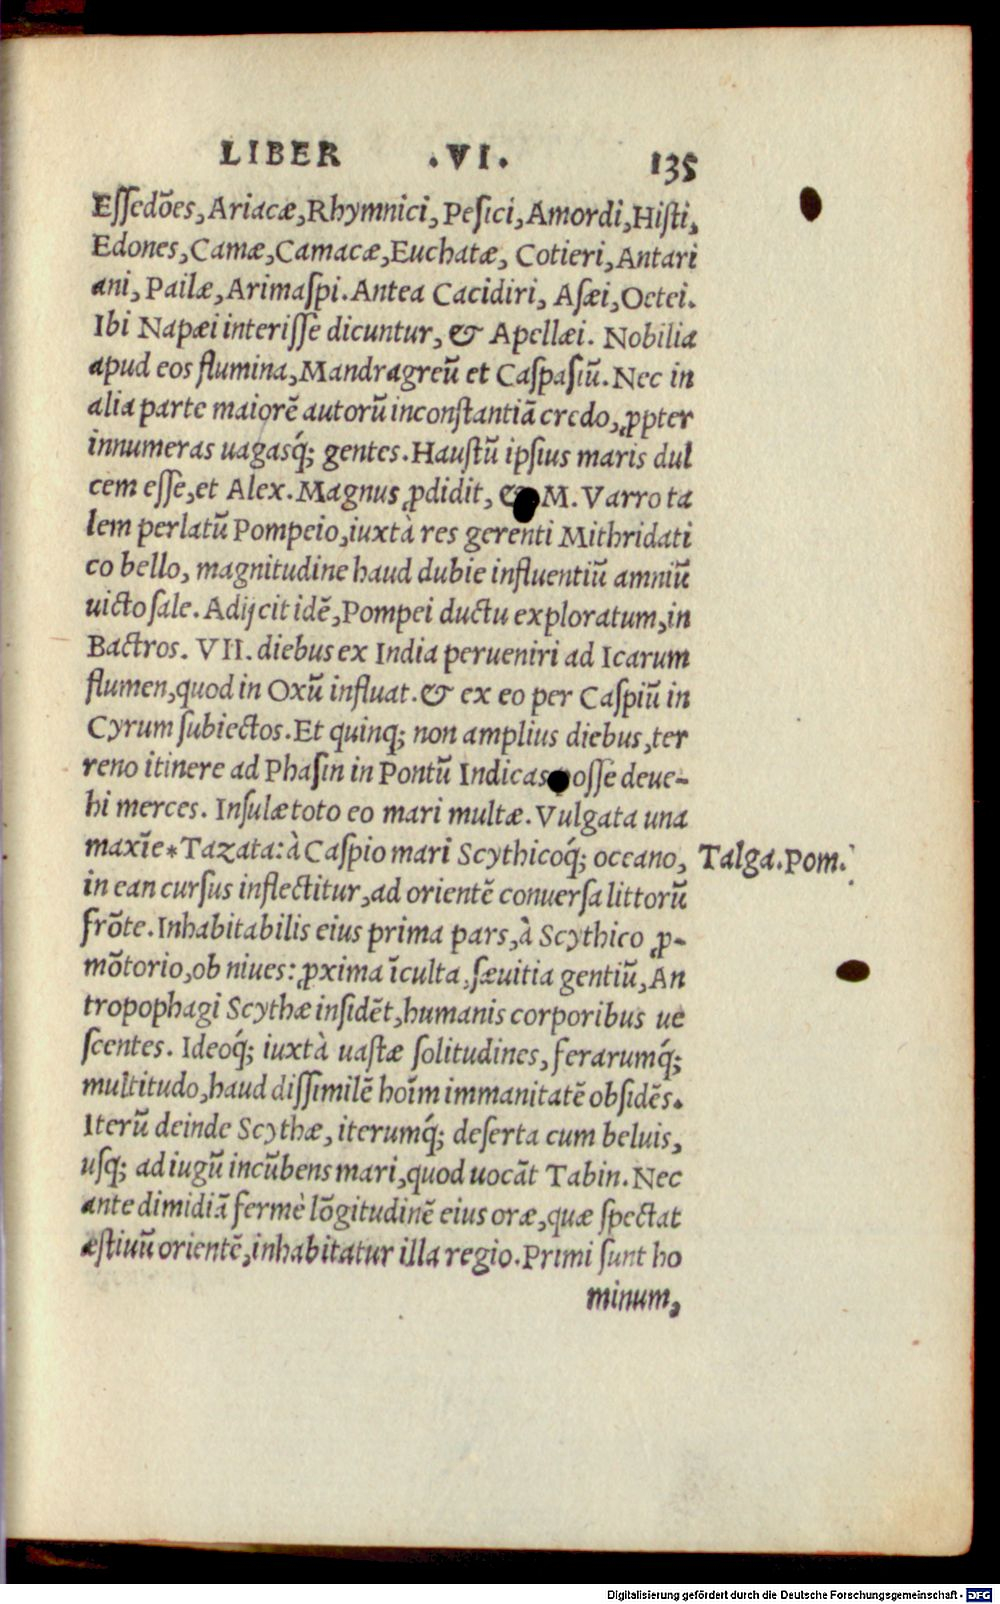 LIBER .VI. 135
Eſſedões, Ariacæ, Rhymnici, Peſici, Amordi, Hiſti,
Edones, Camæ, Camacæ, Euchatæ, Cotieri, Antari
ani, Pailæ, Arimaſpi. Antea Cacidiri, Aſæi, Oetei.
Ibi Napæi interiſſe dicuntur, & Apellæi. Nobilia
apud eos flumina, Mandragreũ et Caſpaſiũ. Nec in
alia parte maiorẽ autorũ inconſtantiã credo, ꝓpter
innumeras uagasq́; gentes. Hauſtũ ipſius maris dul
cem eſſe, et Alex. Magnus ꝓdidit, & M. Varro ta
lem perlatũ Pompeio, iuxtà res gerenti Mithridati
co bello, magnitudine haud dubie influentiũ amniũ
uicto ſale. Adijcit idẽ, Pompei ductu exploratum, in
Bactros. VII. diebus ex India perueniri ad Icarum
flumen, quod in Oxũ influat. & ex eo per Caſpiũ in
Cyrum ſubiectos. Et quinq; non amplius diebus, ter
reno itinere ad Phaſin in Pontũ Indicas poſſe deue-
hi merces. Inſulæ toto eo mari multæ. Vulgata una
maxĩe * Tazata: à Caſpio mari Scythicoq́; oceano, Talga. Pom.
in ean curſus inflectitur, ad orientẽ conuerſa littorũ
frõte. Inhabitabilis eius prima pars, à Scythico ꝓ-
mõtorio, ob niues: ꝓxima ĩculta, ſæuitia gentiũ, An
tropophagi Scythæ inſidẽt, humanis corporibus ue
ſcentes. Ideoq́; iuxtà uaſtæ ſolitudines, ferarumq́;
multitudo, haud diſſimilẽ hoĩm immanitatẽ obſidẽs.
Iterũ deinde Scythæ, iterumq́; deſerta cum beluis,
uſq; ad iugũ incũbens mari, quod uocãt Tabin. Nec
ante dimidiã fermè lõgitudinẽ eius oræ, quæ ſpectat
æſtiuũ orientẽ, inhabitatur illa regio. Primi ſunt ho
minum,
Digitalisierung gefördert durch die Deutsche Forschungsgemeinschaft - DFG